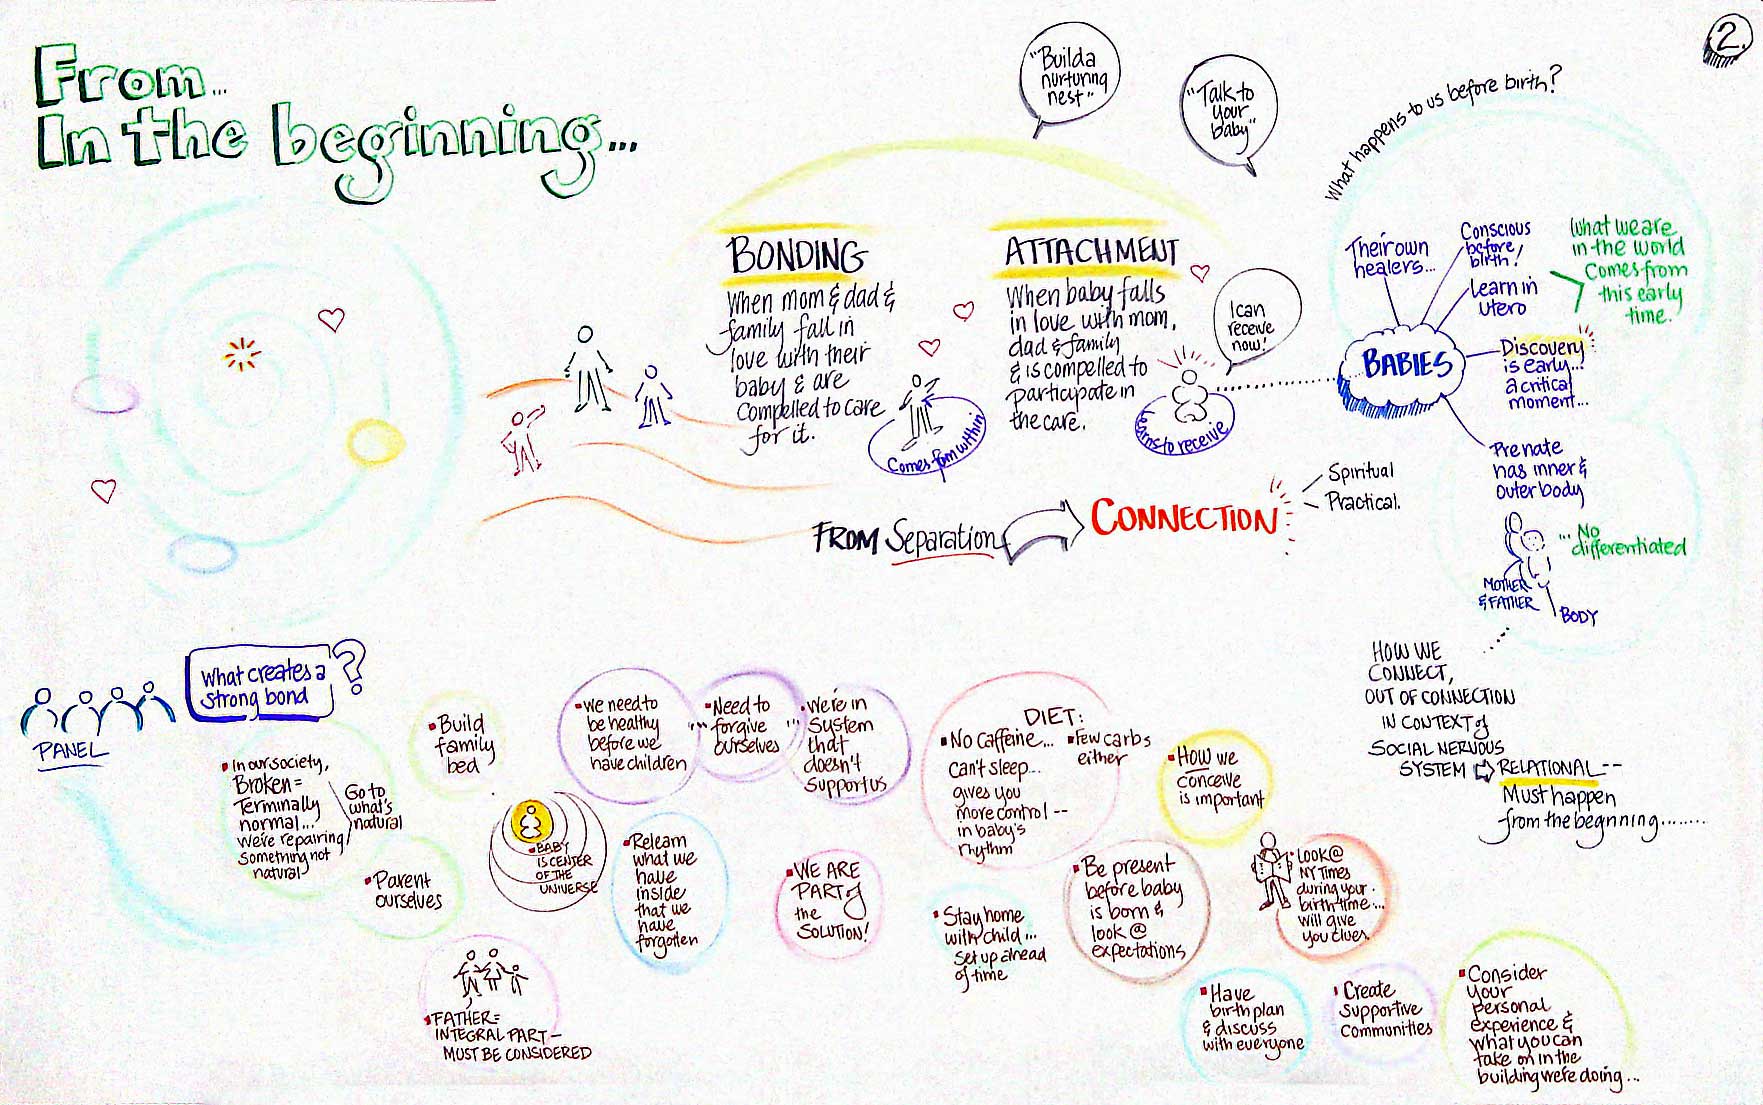 2.
From...
In the beginning...
"Build a
nurturing
nest"
"Talk to
your
baby"
What happens to us before birth?
BONDING
When mom & dad &
family fall in
love with their
baby & are
Compelled to care
for it.
Comes from within
ATTACHMENT
When baby falls
in love with mom,
dad & family
& is compelled to
participate in
the care.
I can
receive
now!
learns to receive
FROM Separation
CONNECTION
Spiritual
Practical.
BABIES
Their own
healers...
Conscious
before
birth!
Learn in
utero
What we are
in the world
Comes from
this early
time.
Discovery
is early...
a critical
moment...
Prenate
has inner &
outer body
... No
differentiated
MOTHER
& FATHER
BODY
HOW WE
CONNECT,
OUT OF CONNECTION
IN CONTEXT of
SOCIAL NERVOUS
SYSTEM ⇨ RELATIONAL--
Must happen
from the begnning........
PANEL
What creates a
strong bond
?
In our society,
Broken =
Terminally
normal...
we're repairing
something not
natural
Go to
what's
natural
Parent
ourselves
Build
family
bed
BABY
IS CENTER
OF THE
UNIVERSE
FATHER =
INTEGRAL PART -
MUST BE CONSIDERED
we need to
be healthy
before we
have children
Need to
forgive
ourselves
We're in
System
that
doesn't
Support us
Relearn
what we
have
inside
that we
have
forgotten
WE ARE
PART of
the
SOLUTION!
DIET:
No Caffeine...
can't sleep...
gives you
more control --
in baby's
rhythm
Few carbs
either
HOW we
conceive
is important
Stay home
with child...
set up ahead
of time
Be present
before baby
is born &
look @
expectations
Look @
NY Times
during your
birth time...
will give
you clues.
Have
birth plan
& discuss
with everyone
Create
Supportive
Communities
Consider
your
personal
experience &
what you can
take on in the
building we're doing...